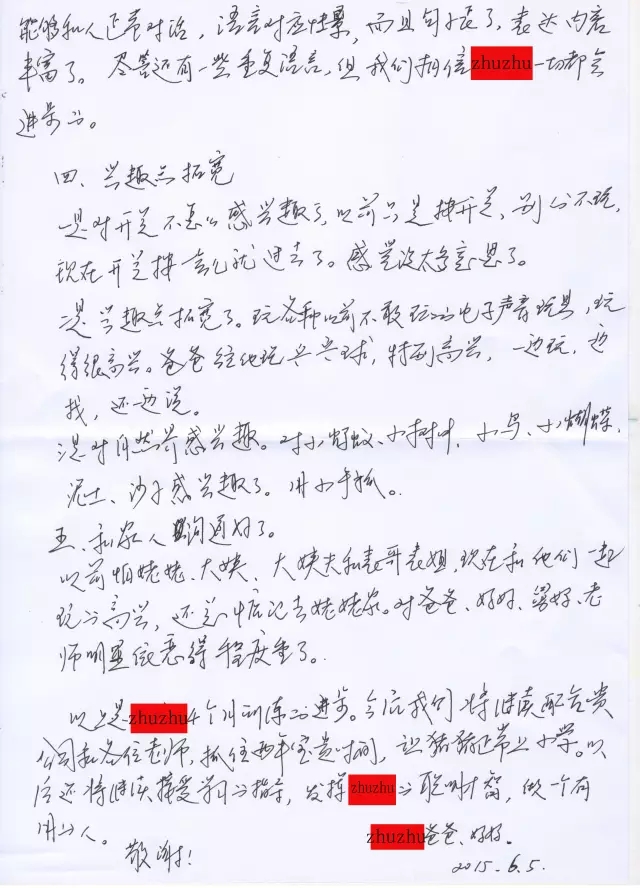 能够和人正常对话，语言对应情景，而且句子长了，表达内容
丰富了。尽管还有一些重复语言，但我们相信zhuzhu一切都会
进步的。
四、兴趣点拓宽
一是对开关不怎么感兴趣了，以前只是按开关，别的不玩，
现在开关按一会儿就过去了。感觉没太多意思了。
二是兴趣点拓宽了。玩各种以前不敢玩的电子声音玩具，玩
得很高兴。爸爸给他玩乒乓球，特别高兴，一边玩，边
找，还边说。
三是对自然界感兴趣。对小蚂蚁、小树叶、小鸟、小蝴蝶、
泥土、沙子感兴趣了。用小手抓。
五、和家人沟通好了。
以前怕姥姥、大姨、大姨夫和表哥表姐，现在和他们一起
玩的高兴，还总惦记去姥姥家。对爸爸、妈妈、舅妈、老
师明显依恋得程度重了。
以上是zhuzhu4个月训练的进步。今后我们将继续配合贵
公司和各位老师，抓住两年宝贵时间，让猪猪正常上小学。以
后还将继续接受学习的指导，发挥zhuzhu的聪明才智，做一个有
用的人。
敬谢！
zhuzhu爸爸、妈妈。
2015.6.5.